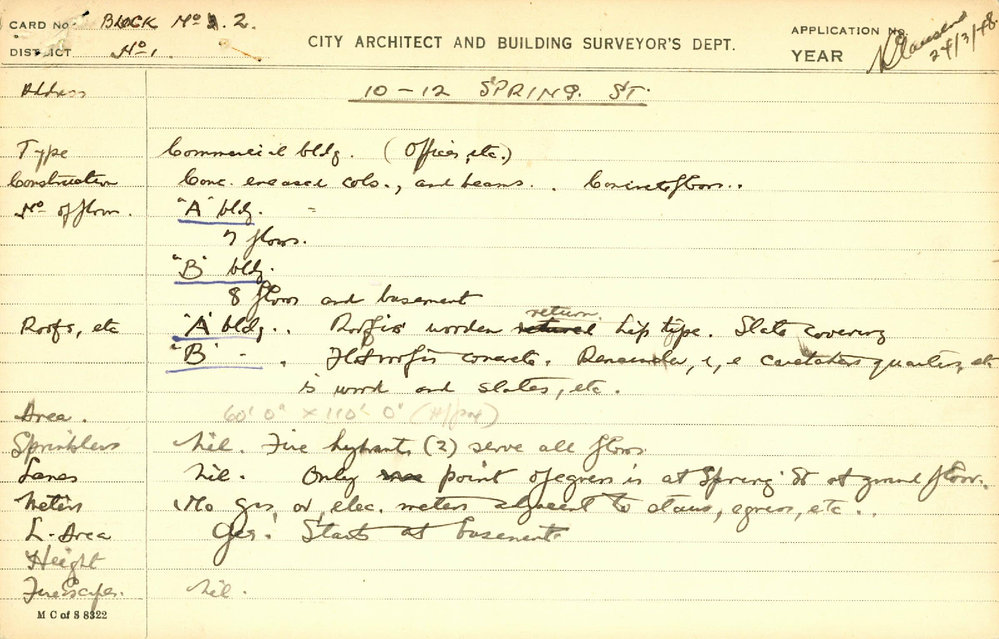 CARD No. BLOCK No 2.
DISTRICT No 1.
CITY ARCHITECT AND BUILDING SURVEYOR'S DEPT.
APPLICATION No.
YEAR
24/3/48
Address 10-12 SPRING. ST.
Type Commercial bldg. (Offices, etc.)
Construction Conc. encased cols., and beams.. Concrete floors..
No of floors. "A" bldg. -
7 floors.
"B" bldg.
8 floors and basement
Roofs, etc "A" bldg.. Roof is wooden return hip type. Slate covering
"B" - . Flat roof is concrete. Remainder, i, e caretakers quarters, etc
is wood and slates, etc.
Area. 60' 0" x 110' 0" (Approx)
Sprinklers Nil. Fire hydrants (2) serve all floors
Lanes Nil. Only point of egress is at Spring St at ground floor.
Meters No gas, or, elec. meters adjacent to stairs, egress, etc..
L-Area Yes. Starts at basement
Height
Fire Escapes. Nil.
M C of S 8322